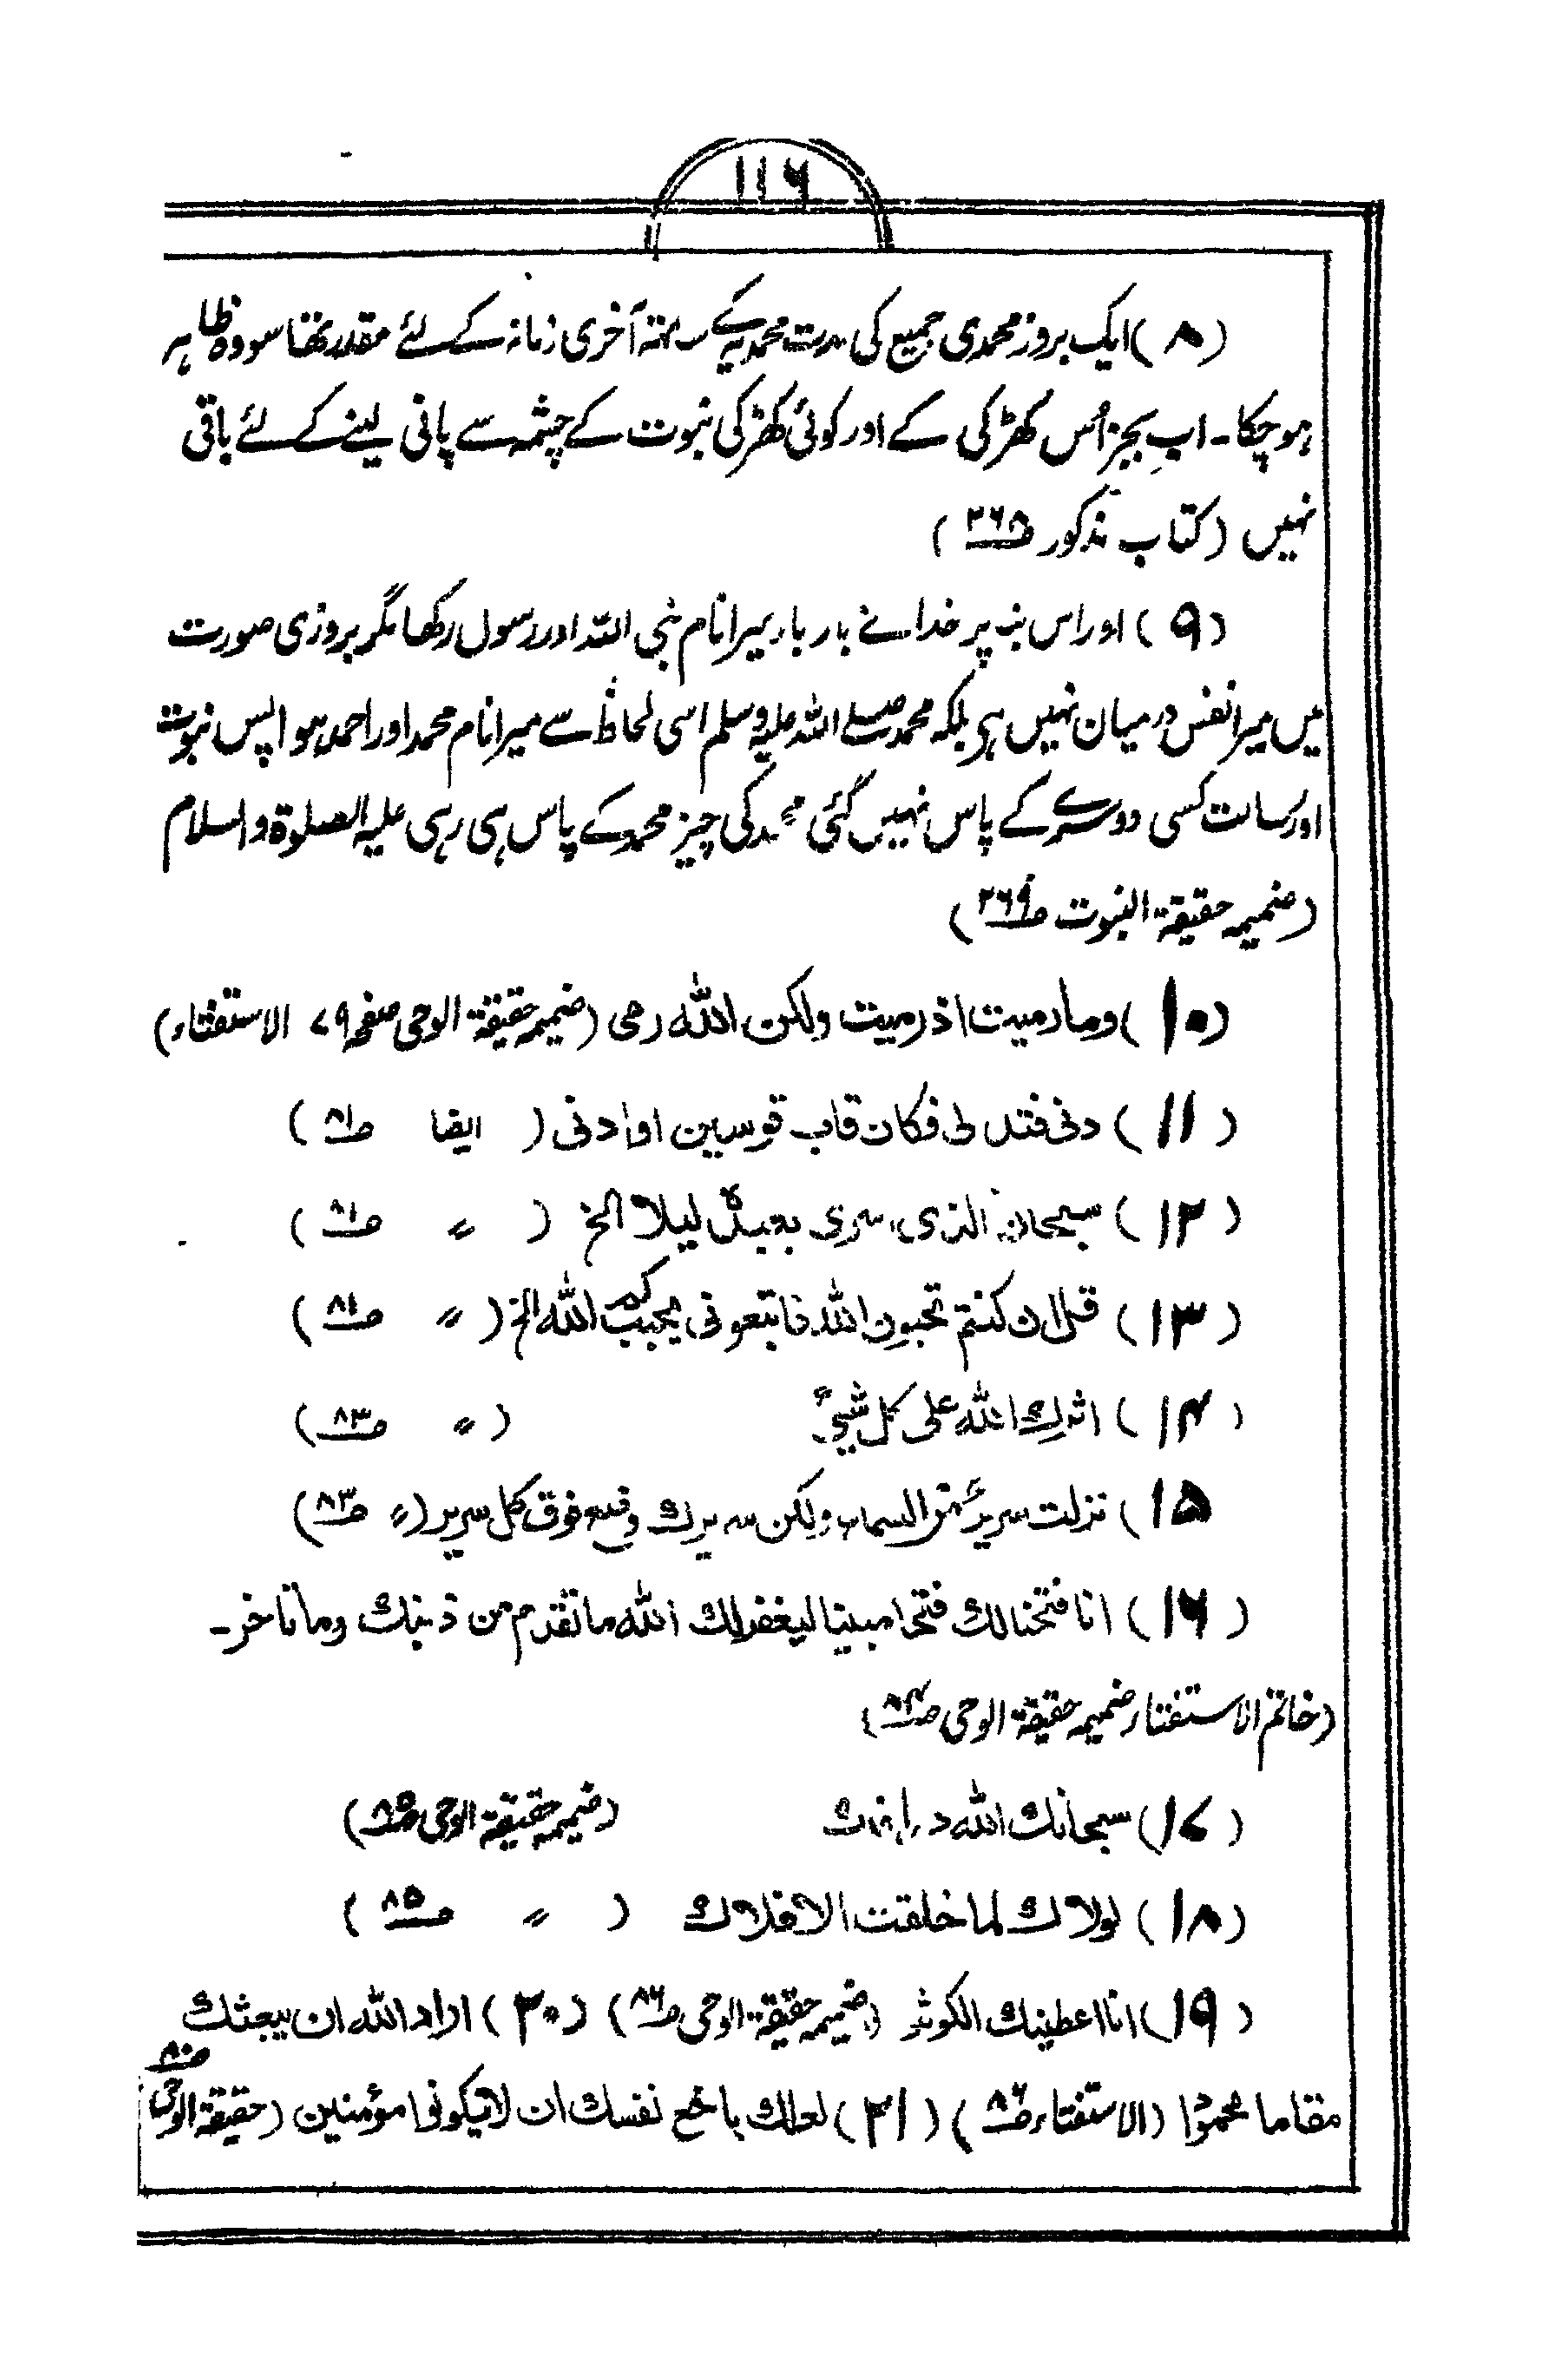 ۱۱۶
(۸) ایک بروز محمدی جمیع کمالات محمدیہ کے ساتھ آخری زمانہ کے لئے مقدر تھا سو وہ ظاہر
ہو چکا۔ اب بجز اُس کھڑکی کے اور کوئی کھڑکی نبوت کے چشمہ سے پانی لینے کے لئے باقی
نہیں (کتاب مذکور ص۲۶۸)
(۹) اور اس بنا پر خدا نے بار بار میرا نام نبی اللہ اور رسول رکھا مگر بروزی صورت
میں میرا نفس درمیان نہیں ہی بلکہ محمد صلے اللہ علیہ وسلم اسی لحاظ سے میرا نام محمد اور احمد ہوا پس نبوت
اور رسالت کسی دوسرے کے پاس نہیں گئی محمد کی چیز محمد کے پاس ہی رہی علیہ الصلوۃ و اسلام
(ضمیمہ حقیقۃ النبوت ص۲۶۹)
(۱۰) وما رمیت اذ رمیت ولکن اللہ رمی (ضمیمہ حقیقۃ الوحی صفحہ ۷۹ الاستفتاء)
(۱۱) دنی فتدلی فکان قاب قوسین او ادنی (ایضا ص۸۱)
(۱۲) سبحان الذی اسری بعبدہ لیلا الخ (〃 ص۸۱)
(۱۳) قل ان کنتم تحبون اللہ فاتبعونی یحببکم اللہ الخ (〃 ص۸۱)
(۱۴) اثرک اللہ علی کل شیءٍ (〃 ص۸۳)
۱۵) نزلت سریر من السماء ولکن سریرک وضع فوق کل سریر (〃 ص۸۳)
(۱۶) انا فتحنا لک فتحا مبینا لیغفر لک اللہ ما تقدم من ذنبک وما تاخر۔
(خاتم الاستفتاء ضمیمہ حقیقۃ الوحی ص۸۴)
(۱۷) سبحانک اللہ (ضمیمہ حقیقۃ الوحی ص۸۵)
(۱۸) لولاک لما خلقت الافلاک (〃 ص۸۵)
(۱۹) انا اعطینک الکوثر (ضمیمہ حقیقۃ الوحی ص۸۶) (۲۰) اراد اللہ ان یبعثک
مقاما محمودا (الاستفتاء ص۸۶) (۲۱) لعلک باخع نفسک ان لا یکونوا مؤمنین (حقیقۃ الوحی ص۸۰